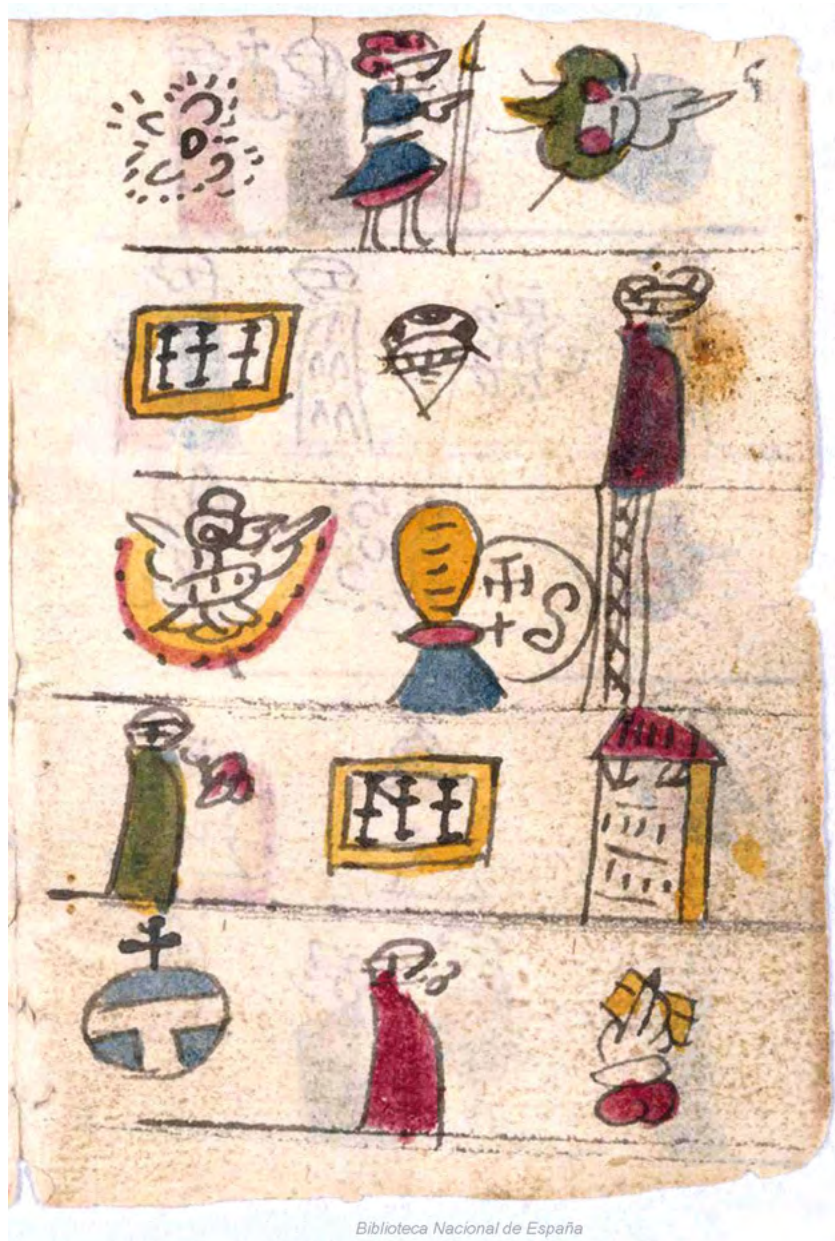 IHS
Biblioteca Nacional de España